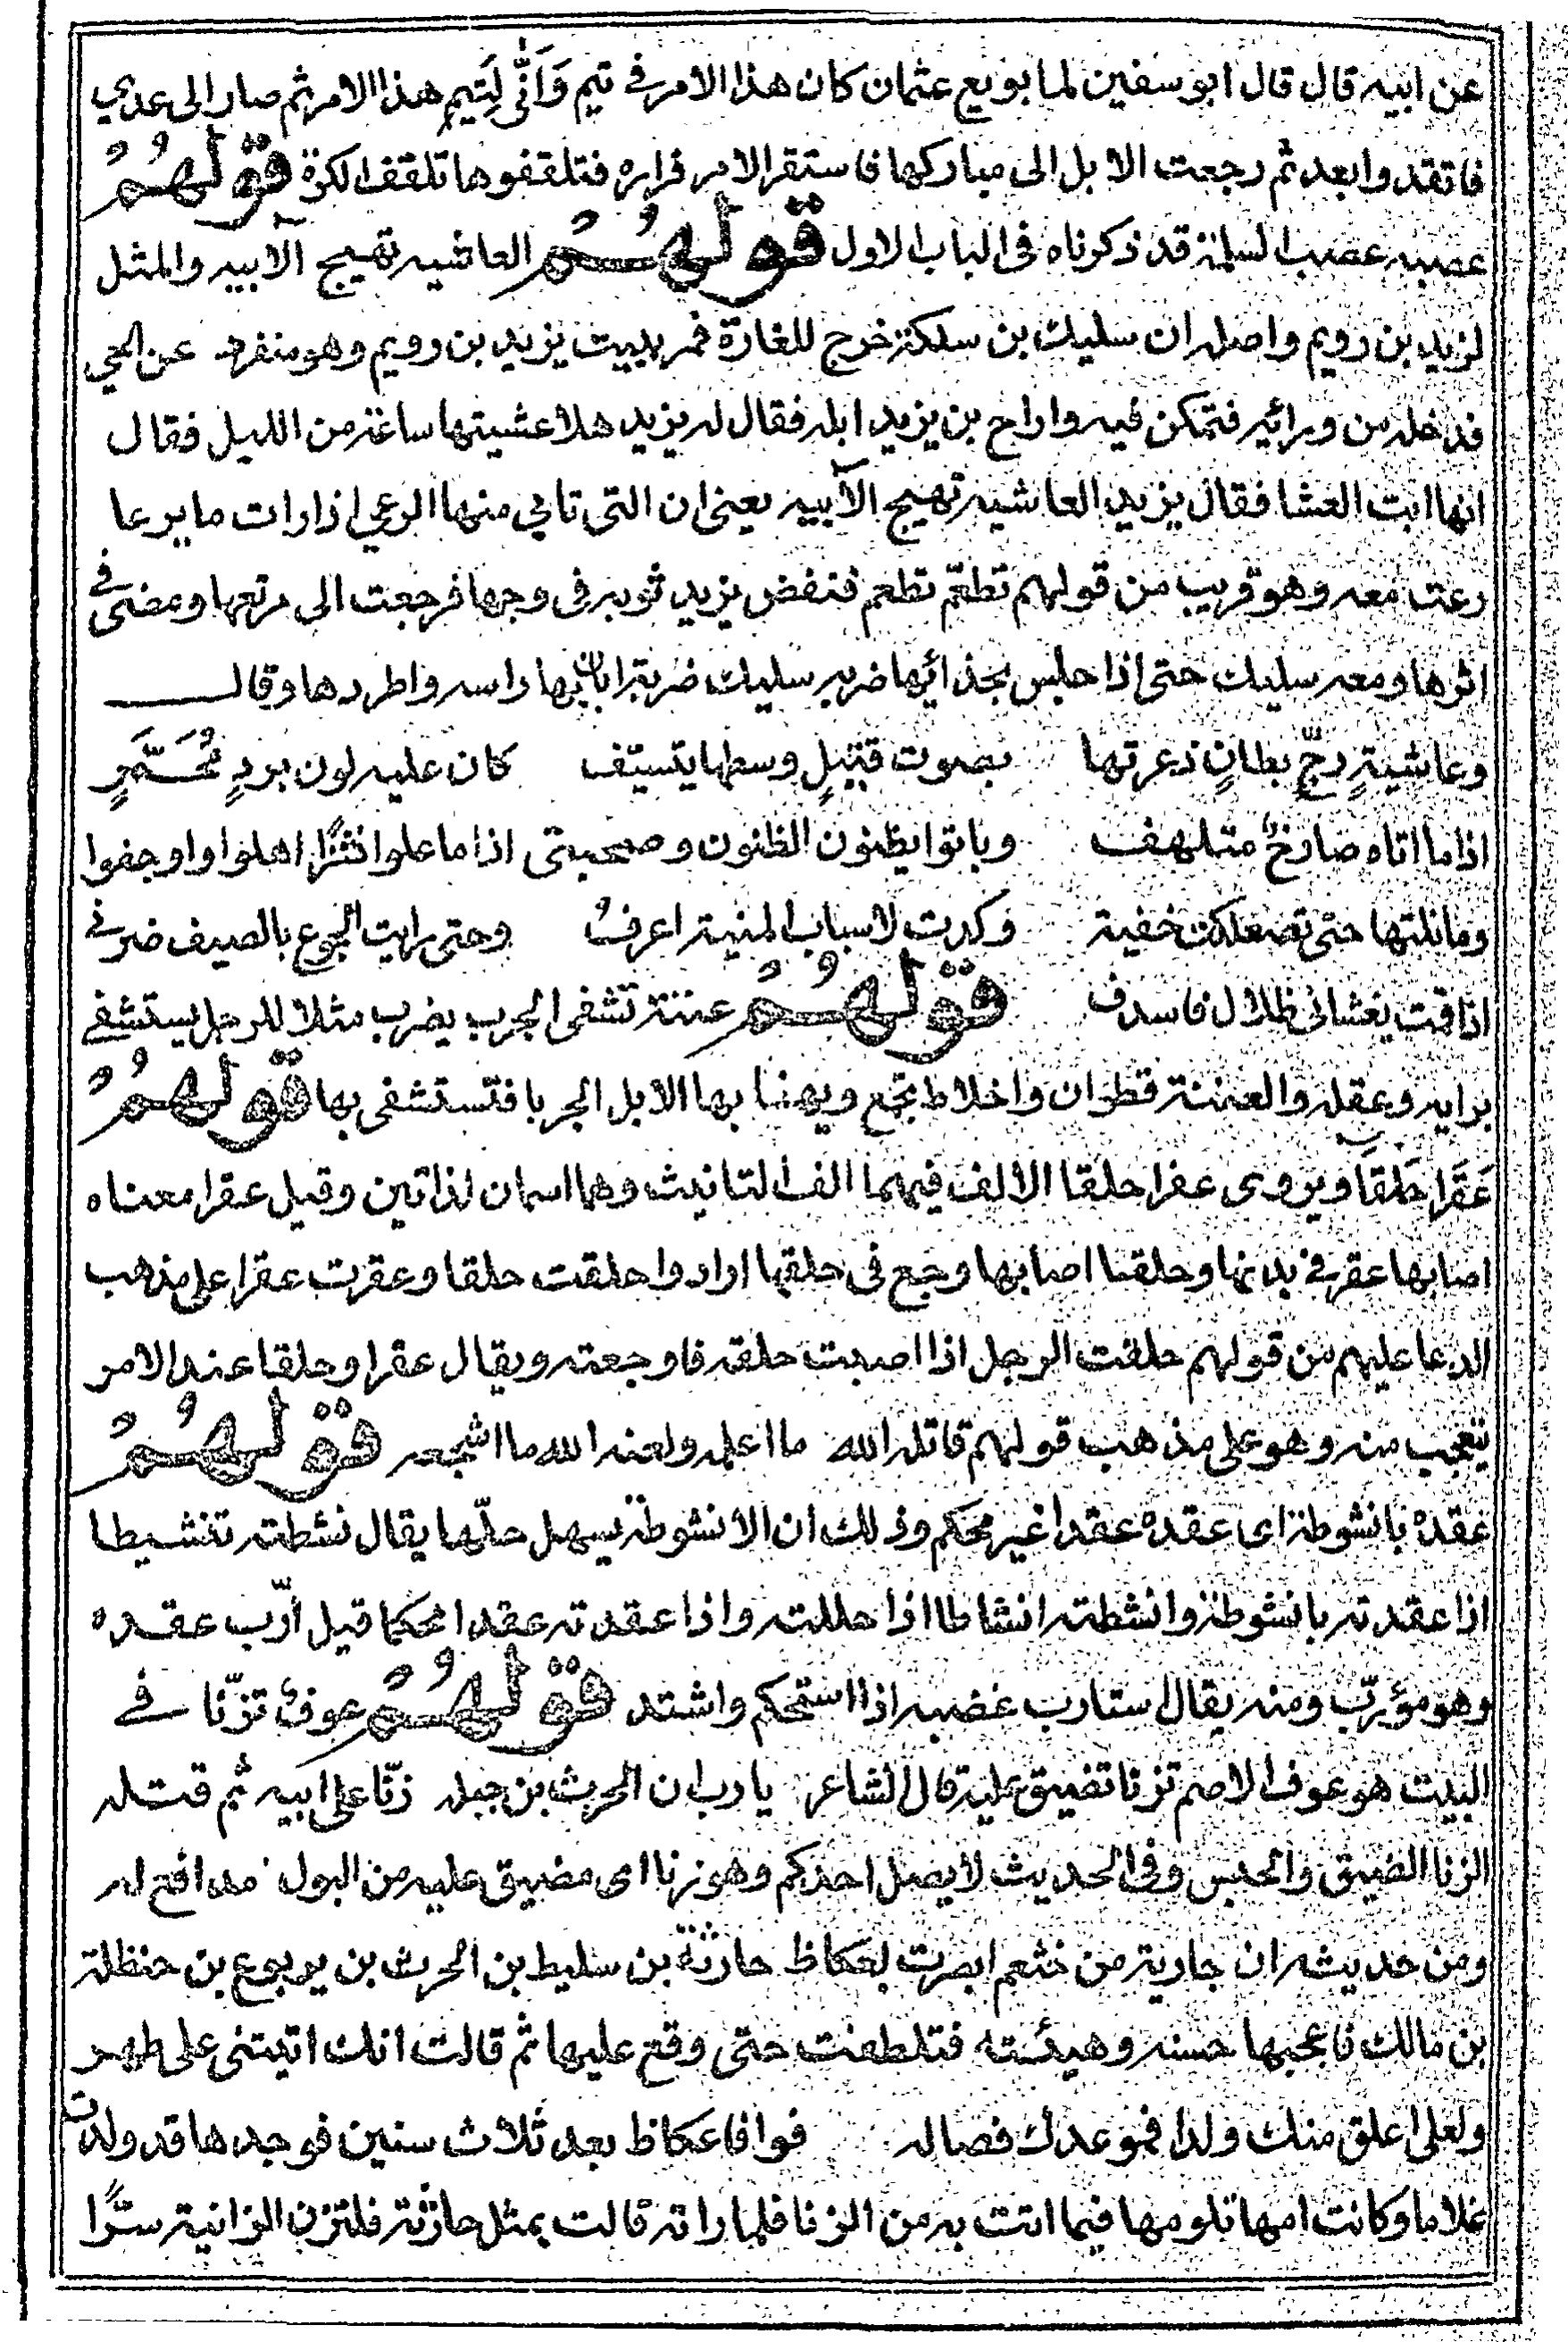 عن ابيه قال قال ابو سفين لما بويع عثمان كان هذا الامر في تيم وَاَنَّى لِتَيمٍ هذا الامر ثم صار الى عدي
فاتقد وابعد ثم رجعت الابل الى مباركها فاستقر الامر قراره فتلقفوها تلقف الكرة قولهم
عصبه عصب السلمة قد ذكرناه في الباب الاول قولهم العاشيه تهيج الآبيه والمثل
لزيد بن رويم واصله ان سليك بن سلكة خرج للغارة فمر ببيت يزيد بن رويم وهو منفرد عن الحي
فدخله من ورائه فتمكن فيه واراح بن يزيد ابله فقال له يزيد هلا عشيتها ساعة من الليل فقال
انها ابت العشا فقال يزيد العاشيه تهيج الآبيه يعني ان التي تابي منها الرعي اذا رات ما يرعا
رعت معه وهو قريب من قولهم تطعّم تطعم فنفض يزيد ثوبه في وجهها فرجعت الى مرتعها ومضى في
اثرها ومعه سليك حتى اذا جلس بحذائها ضربه سليك ضربة ابان بها راسه واطردها وقال
وعاشيةٍ رجّ بطانٍ ذعرتها بصوت قتيلٍ وسطها يتسيّف كان عليه لون بردٍ مُحَبَّرٍ
اذا ما اتاه صارخٌ متلهف وباتوا يظنون الظنون وصحبتي اذا ما علوا نشزًا اهلوا واوجفوا
وما نلتها حتى تصعلكت حقبة وكدت لاسباب المنية اعرفُ وحتى رايت الجوع بالصيف ضرني
اذا قمت يغشاني ظلال فاسدف قولهم عنيته تشفى الجرب يضرب مثلا للرجل يستشفى
برايه وعقله والعنية قطران واخلاط تجمع ويهنا بها الابل الجربا فتستشفى بها قولهمُ
عَقرَا حَلقَا ويروى عقرا حلقا الالف فيهما الف التانيث وهما اسمان لذاتين وقيل عقرا معناه
اصابها عقر في بدنها وحلقا اصابها وجع في حلقها ارادوا حلقت حلقا وعقرت عقرا على مذهب
الدعا عليهم من قولهم حلقت الرجل اذا اصبت حلقه فاوجعته ويقال عقرا وحلقا عند الامر
يتعجب منه وهو على مذهب قولهم قاتله الله ما اعلمه ولعنه الله ما اشجعه قولهمُ
عقده بانشوطة اى عقده عقدا غير محكم وذلك ان الانشوطة يسهل حلّها يقال نشطته تنشيطا
اذا عقدته بانشوطة وانشطته انشاطا اذا حللته واذا عقدته عقدا محكما قيل أرّب عقده
وهو مؤرّب ومنه يقال استارب غضبه اذا استحكم واشتد قولهمُ عوف تزنّا في
البيت هو عوف الاصم تزنا تضيق عليه قال الشاعر يا رب ان الحرث بن جبله زنّا على ابيه ثم قتله
الزنا الضيق والحبس وفي الحديث لا يصل احدكم وهو زنا اى مضيق عليه من البول مدافع له
ومن حديثه ان جارية من خثعم ابصرت بعكاظ حارثة بن سليط بن الحرث بن يربوع بن حنظلة
بن مالك فاعجبها حسنه وهيئته فتلطفت حتى وقع عليها ثم قالت انك اتيتني على طهر
ولعلى اعلق منك ولدا فموعدك فصاله فوافا عكاظ بعد ثلاث سنين فوجدها قد ولدت
غلاما وكانت امها تلومها فيما اتت به من الزنا فلما راته قالت بمثل حارثة فلتزن الزانية سرًّا